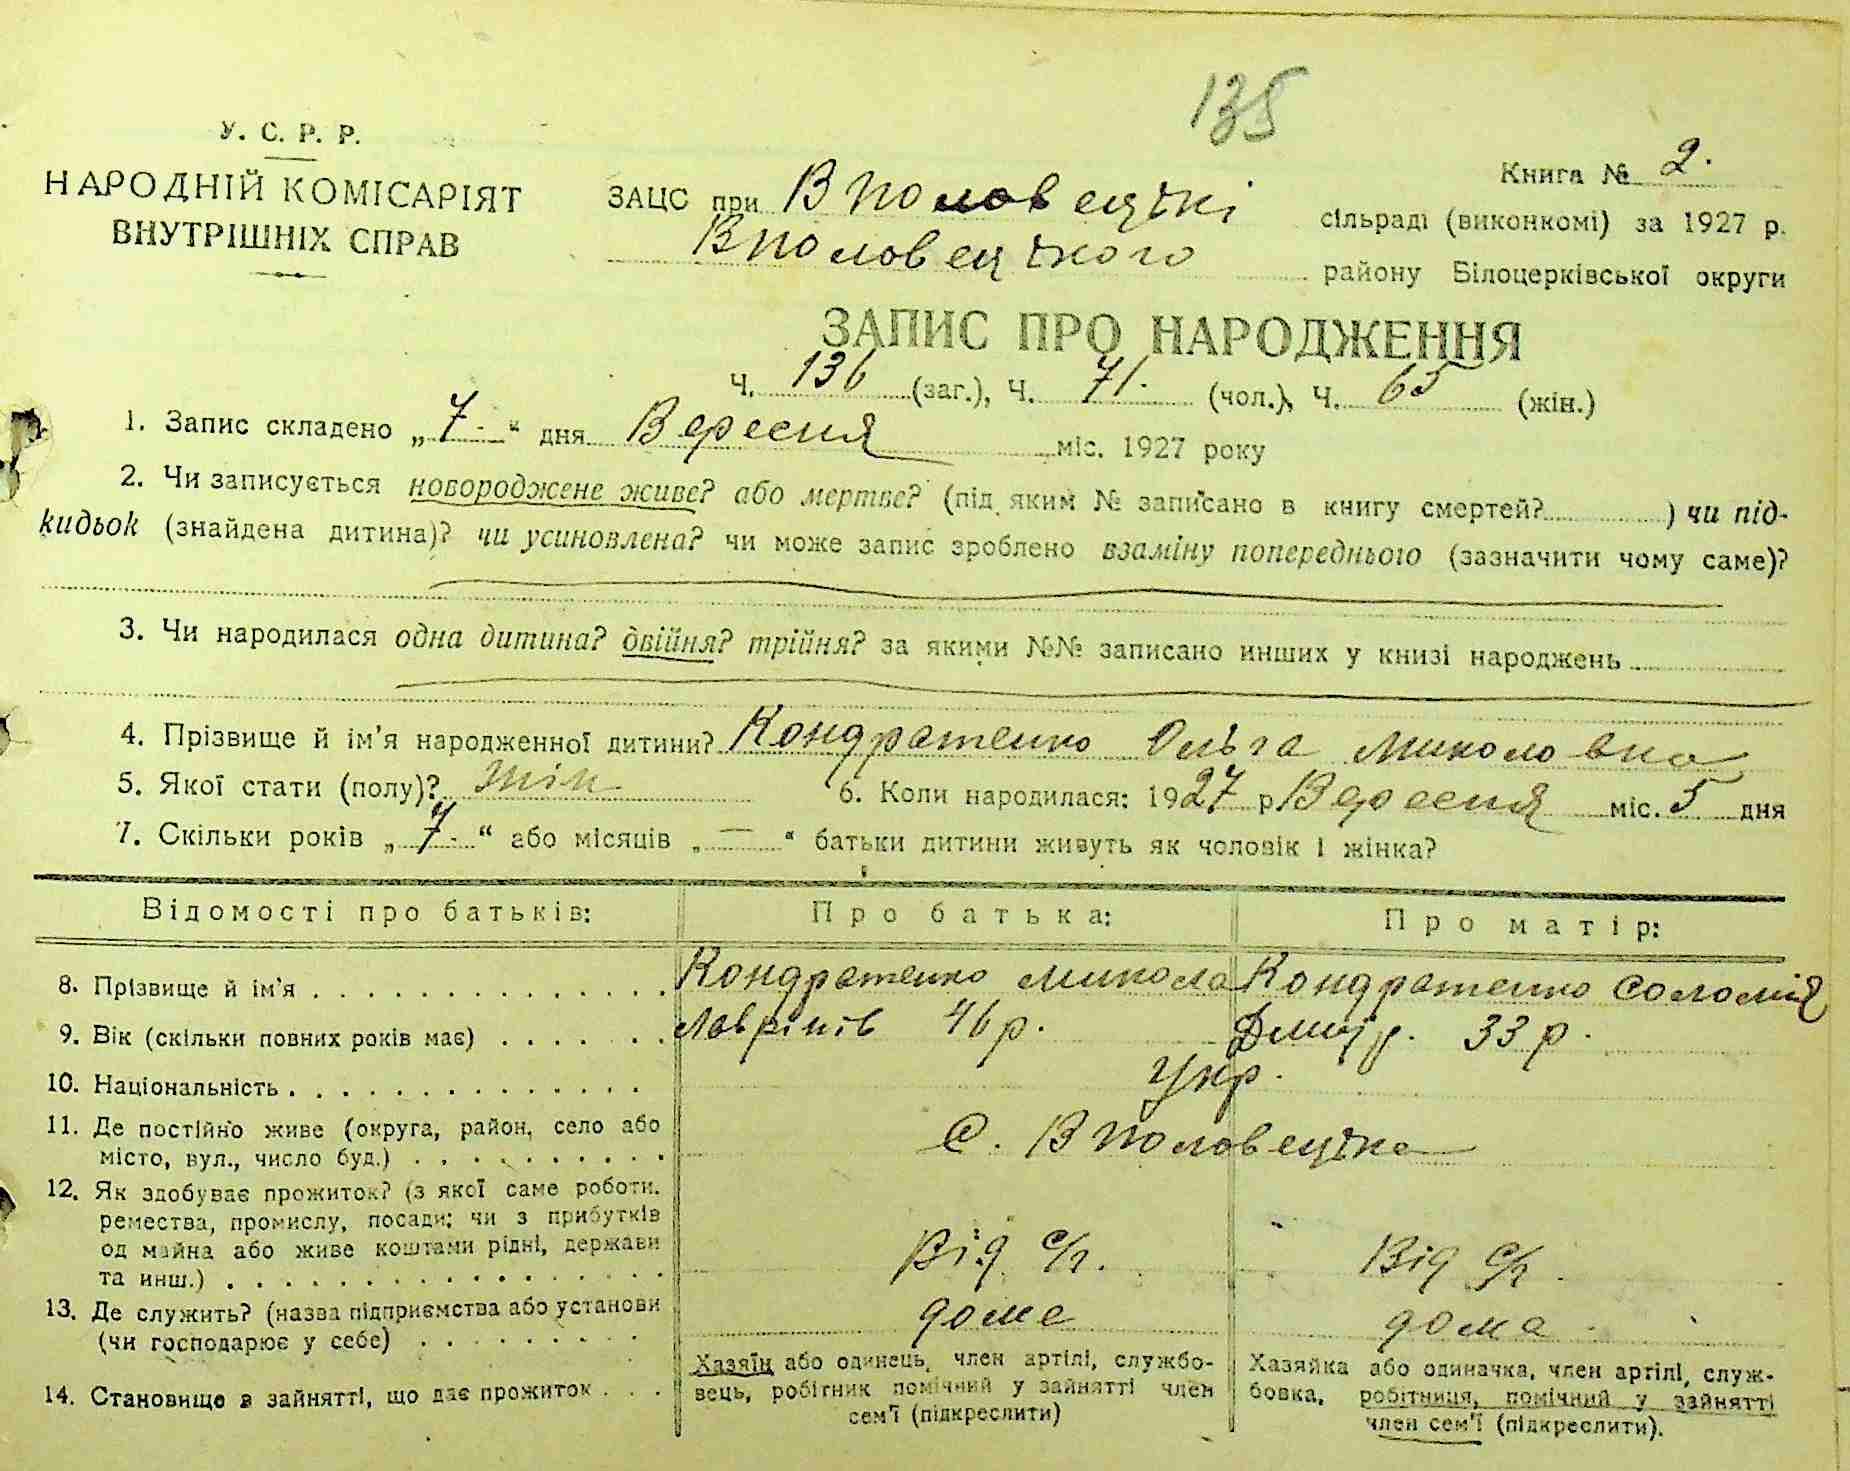 135
У. С. Р. Р.
НАРОДНІЙ КОМІСАРІЯТ
ВНУТРІШНІХ СПРАВ
Книга № 2.
ЗАЦС при В Половецькі сільраді (виконкомі) за 1927 р.
В Половецького району Білоцерківської округи
ЗАПИС ПРО НАРОДЖЕННЯ
Ч. 136 (заг.), Ч. 71. (чол.), Ч. 65 (жін.)
1. Запис складено „7-“ дня Вересня міс. 1927 року
2. Чи записується новороджене живе? або мертве? (під яким № записано в книгу смертей? ) чи під-
кидьок (знайдена дитина)? чи усиновлена? чи може запис зроблено взаміну попереднього (зазначити чому саме)?
3. Чи народилася одна дитина? двійня? трійня? за якими №№ записано инших у книзі народжень
4. Прізвище й ім'я народженної дитини? Кондратенко Ольга Миколовна
5. Якої стати (полу)? жін 6. Коли народилася: 1927 р Вересня міс. 5 дня
7. Скільки років „7-“ або місяців „—“ батьки дитини живуть як чоловік і жінка?
Відомості про батьків: Про батька: Про матір:
8. Прізвище й ім'я Кондратенко Микола Кондратенко Соломія
9. Вік (скільки повних років має) Лаврінів 46 р. Дмитр. 33 р.
10. Національність Укр.
11. Де постійно живе (округа, район, село або
місто, вул., число буд.) С. В Половецька
12. Як здобуває прожиток? (з якої саме роботи.
ремества, промислу, посади; чи з прибутків
од майна або живе коштами рідні, держави
та инш.) Від с/г. Від с/г.
13. Де служить? (назва підприємства або установи
(чи господарює у себе) дома дома
14. Становище в зайнятті, що дає прожиток
Хазяїн або одинець, член артілі, службо-
вець, робітник помічний у зайнятті член
сем'ї (підкреслити)
Хазяйка або одиначка, член артілі, служ-
бовка, робітниця, помічний у зайнятті
член сем'ї (підкреслити).